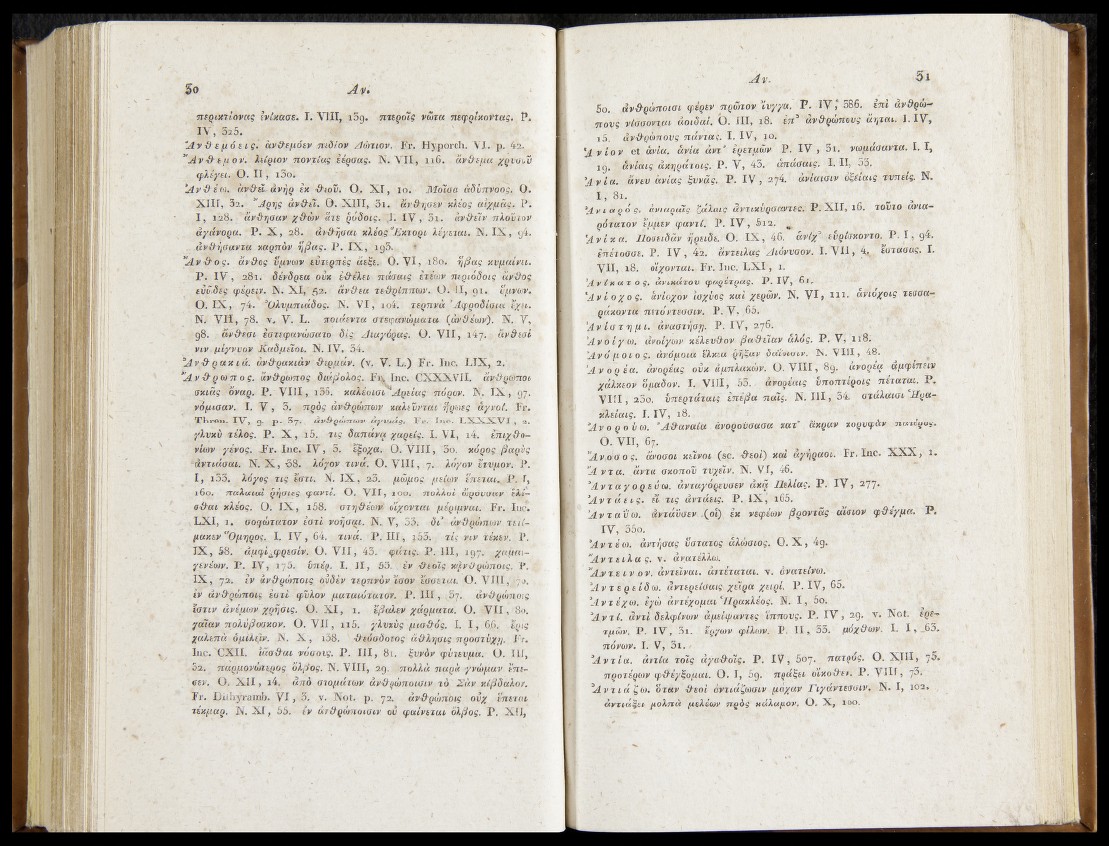 30 Αν.
περικτίονας ἐνίκασε. I. VIII, 139. πτεροῖς νῶτα πεφρίκοντας. P.
IV, 325.
Ἀνθεμόεις. ἀνθεμόεν πιδίον Λώτιον. Fr. Hyporch. VI. p. 42.
Ἄνθεμον. λείριον ποντίας ἐέρσας. N. VII, 116. ἄνθεμα χρυσοῦ
φλέγει. O. II, 130.
Ἀνθέω. ἀνθεῖ ἀνὴρ ἐκ θεοῦ. O. XI, 10. Μοῖσα ἀδύπνοος. O.
XIII, 32. Ἄρης ἀνθεῖ. O. XIII, 31. ἄνθησεν κλέος αἰχμᾶς. P.
I, 128. ἄνθησαν χθὼν ἅτε ῥόδοις. I. IV, 31. ἀνθεῖν πλοῦτον
ἀγάνορα. P. X, 28. ἀνθῆσαι κλέος Ἕκτορι λέγεται. N. IX, 94.
ἀνθήσαντα καρπὸν ἥβας. P. IX, 193.
Ἄνθος. ἄνθος ὕμνων εὐτερπὲς ἄεξε. O. VI, 180. ἥβας κυμαίνει.
P. IV, 281. δένδρεα οὐκ ἐθέλει πάσαις ἐτέων περιόδοις ἄνθος
εὐῶδες φέρειν. N. XI, 52. ἄνθεα τεθρίππων. O. II, 91. ὕμνων.
O. IX, 74. Ὀλυμπιάδος. N. VI, 104. τερπνὰ Ἀφροδίσια ἔχει.
N. VII, 78. v. V. L. ποιάεντα στεφανώματα (ἀνθέων). N. V,
98. ἄνθεσι ἐστεφανώσατο δὶς Διαγόρας. O. VII, 147. ἄνθεσί
νιν μίγνυον Καδμεῖοι. N. IV, 34.
Ἀνθρακιά. ἀνθρακιὰν θερμάν. (v. V. L.) Fr. Inc. LIX, 2.
Ἄνθρωπος. ἄνθρωπος διάβολος. Fr. Inc. CXXXVII. ἄνθρωποι
σκιᾶς ὄναρ. P. VIII, 136. καλέοισι Ἀρείας πόρον. N. IX, 97.
νόμισαν. I. V, 3. πρὸς ἀνθρώπων καλεῦνται ἥρωες ἁγνοί. Fr.
Thren. IV, 9. p. 37. ἀνθρώπων ἀγωνάς. Fr. Inc. LXXXVI, 2.
γλυκὺ τέλος. P. X, 15. τις δαπάνᾳ χαρείς. I. VI, 14. ἐπιχθο-
νίων γένος. Fr. Inc. IV, 5. ἔξοχα. O. VIII, 30. κόρος βαρὺς
ἀντιάσαι. N. X, 38. λόγον τινά. O. VIII, 7. λόγον ἔτυμον. P.
I, 133. λόγος τις ἔστι. N. IX, 23. μῶμος μείων ἕπεται. P. I,
160. παλαιαὶ ῥήσιες φαντί. O. VII, 100. πολλοὶ ὤρουσαν ἑλέ-
σθαι κλέος. O. IX, 158. στηθέων οἴχονται μέριμναι. Fr. Inc.
LXI, 1. σοφώτατον ἐστὶ νοῆσαι. N. V, 33. δι' ἀνθρώπων τετί-
μακεν Ὅμηρος. I. IV, 64. τινά. P. III, 153. τίς νιν τέκεν. P.
IX, 58. ἀμφὶ φρεσίν. O. VII, 43. φάτις. P. III, 197. χαμαι-
γενέων. P. IV, 175. ὑπέρ. I. II, 55. ἐν θεοῖς κἀνθρώποις. P.
IX, 72. ἐν ἀνθρώποις οὐδὲν τερπνὸν ἴσον ἔσσεται. O. VIII, 70.
ἐν ἀνθρώποις ἐστὶ φῦλον ματαιότατον. P. III, 37. ἀνθρώποις
ἔστιν ἀνέμων χρῆσις. O. XI, 1. ἔβαλεν χάρματα. O. VII, 80.
γαῖαν πολύβοσκον. O. VII, 115. γλυκὺς μισθός. I. I, 66. ἔρις
χαλεπὰ ὁμιλεῖν. N. X, 138. θεόσδοτος ἄθλησις προστύχῃ. Fr.
Inc. CXII. ἰᾶσθαι νόσοις. P. III, 81. ξυνὸν φύτευμα. O. III,
32. παρμονώτερος ὄλβος. N. VIII, 29. πολλὰ παρὰ γνώμαν ἔπε-
σεν. O. XII, 14. ἀπὸ στομάτων ἀνθρώποισιν τὸ Σὰν κίβδαλον.
Fr. Dithyramb. VI, 3. v. Not. p. 72. ἀνθρώποις οὐχ ἕπεται
τέκμαρ. N. XI, 55. ἐν ἀνθρώποισιν οὐ φαίνεται ὄλβος. P. XII,
Αν. 31
50. ἀνθρώποισι φέρεν πρῶτον ἴυγγα. P. IV, 386. ἐπὶ ἀνθρώ-
πους νίσσονται ἀοιδαί. O. III, 18. ἐπ' ἀνθρώπους ἄηται. I. IV,
15. ἀνθρώπους πάντας. I. IV, 10.
Ἀνίον et ἀνία. ἀνία ἀντ' ἐρετμῶν P. IV, 31. νωμάσαντα. I. I,
19. ἀνίαις ἀκηράτοις. P. V, 43. ἁπάσαις. I. II, 33.
Ἀνία. ἄνευ ἀνίας ξυνᾶς. P. IV, 274. ἀνίαισιν ὀξείαις τυπείς. N.
I, 81.
Ἀνιαρός. ἀνιαραῖς ζάλαις ἀντικύρσαντες. P. XII, 16. τοῦτο ἀνια-
ρότατον ἔμμεν φαντί. P. IV, 512.
Ἀνίκα. Ποσειδὰν ἤρειδε. O. IX, 46. ἁνίχ' εὑρίσκοντο. P. I, 94.
ἐπέτοσσε. P. IV, 42. ἀντειλας Διόνυσον. I. VII, 4. ἔστασας. I.
VII, 18. οἴχονται. Fr. Inc. LXI, 1.
Ἀνίκατος. ἀνικάτου φαρέτρας. P. IV, 61.
Ἀνίοχος. ἀνίοχον ἰσχύος καὶ χερῶν. N. VI, 111. ἁνιόχοις τεσσα-
ράκοντα πετόντεσσιν. P. V, 65.
Ἀνίστημι. ἀναστήσῃ. P. IV, 276.
Ἀνοίγω. ἀνοίγων κέλευθον βαθεῖαν ἁλός. P. V, 118.
Ἀνόμοιος. ἀνόμοια ἕλκεα ῥῆξαν δαΐοισιν. N. VIII, 48.
Ἀνορέα. ἀνορέας οὐκ ἀμπλακών. O. VIII, 89. ἀνορέᾳ ἀμφέπειν
χάλκεον ὅμαδον. I. VIII, 55. ἀνορέαις ὑποπτέροις πέταται. P.
VIII, 230. ὑπερτάταις ἐπέβα παῖς. N. III, 34. στάλαισι Ἡρα-
κλείαις. I. IV, 18.
Ἀνορούω. Ἀθαναία ἀνορούσασα κατ' ἄκραν κορυφὰν πατέρος.
O. VII, 67.
Ἄνοσος. ἄνοσοι κεῖνοι (sc. θεοὶ) καὶ ἀγήραοι. Fr. Inc. XXX, 1.
Ἄντα. ἄντα σκοποῦ τυχεῖν. N. VI, 46.
Ἀνταγορεύω. ἀνταγόρευσεν ἀκᾷ Πελίας. P. IV, 277.
Ἀντάεις. εἴ τις ἀντάεις. P. IX, 165.
Ἀνταΰω. ἀντάϋσεν (οἱ) ἐκ νεφέων βροντᾶς αἴσιον φθέγμα. P.
IV, 350.
Ἀντέω. ἀντήσας ὕστατος ἁλώσιος. O. X, 49.
Ἄντειλας. v. ἀνατέλλω.
Ἄντεινον. ἀντεῖναι. ἀντέταται. v. ἀνατείνω.
Ἀντερείδω. ἀντερείσαις χεῖρα χειρί. P. IV, 65.
Ἀντέχω. ἐγὼ ἀντέχομαι Ἡρακλέος. N. I, 50.
Ἀντί. ἀντὶ δελφίνων ἀμείψαντες ἵππους. P. IV, 29. v. Not. ἐρε-
τμῶν. P. IV, 31. ἔργων φίλων. P. II, 33. μόχθων. I. I, 63.
πόνων. I. V, 31.
Ἀντία. ἀντία τοῖς ἀγαθοῖς. P. IV, 507. πατρός. O. XIII, 75.
προτέρων φθέγξομαι. O. I, 59. πράξει οἴκοθεν. P. VIII, 73.
Ἀντιάζω. ὅταν θεοὶ ἀντιάζωσιν μάχαν Γιγάντεσσιν. N. I, 102.
ἀντιάξει μολπὰ μελέων πρὸς κάλαμον. O. X, 100.